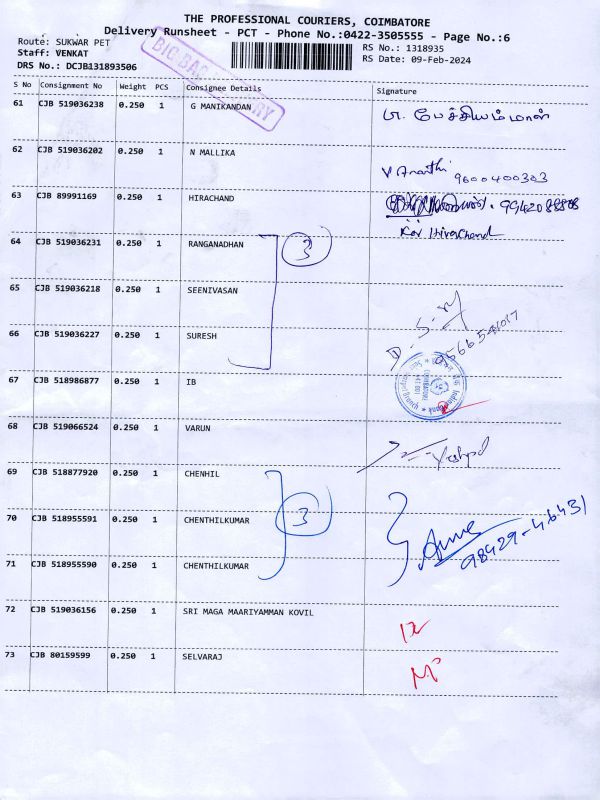 THE PROFESSIONAL COURIERS, COIMBATORE
Delivery Runsheet - PCT - Phone No.:0422-3505555 - Page No.:6
Route: SUKWAR PET
Staff: VENKAT
DRS No.: DCJB131893506
RS No.: 1318935
RS Date: 09-Feb-2024
BIG BAG
S No Consignment No Weight PCS Consignee Details Signature
61 CJB 519036238 0.250 1 G MANIKANDAN பேச்சியம்மாள்
62 CJB 519036202 0.250 1 N MALLIKA V Ananthi 9600400303
63 CJB 89991169 0.250 1 HIRACHAND
For Hirachand
64 CJB 519036231 0.250 1 RANGANADHAN 3
65 CJB 519036218 0.250 1 SEENIVASAN
66 CJB 519036227 0.250 1 SURESH 9566541017
67 CJB 518986877 0.250 1 IB
68 CJB 519066524 0.250 1 VARUN
69 CJB 518877920 0.250 1 CHENHIL
70 CJB 518955591 0.250 1 CHENTHILKUMAR 3 98429-46431
71 CJB 518955590 0.250 1 CHENTHILKUMAR
72 CJB 519036156 0.250 1 SRI MAGA MAARIYAMMAN KOVIL
73 CJB 80159599 0.250 1 SELVARAJ